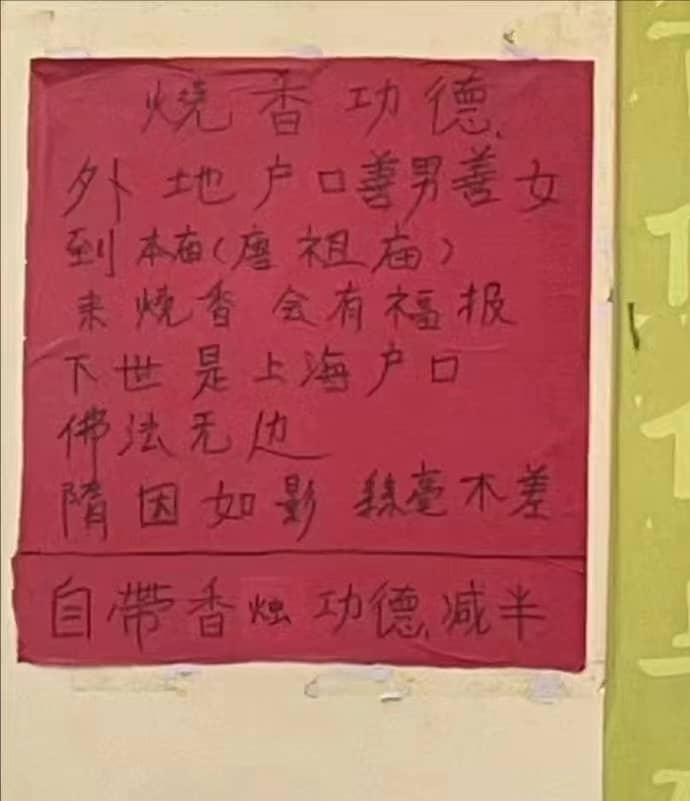 烧香功德
外地户口善男善女
到本庙(唐祖庙)
来烧香 会有福报
下世是上海户口
佛法无边
隋因如影 絲毫不差
自带香烛 功德减半